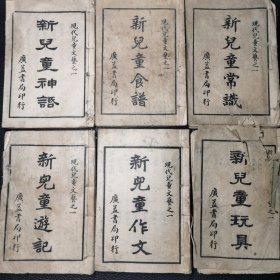 現代兒童文藝之一
新兒童神話
廣益書局印行
現代兒童文藝之一
新兒童食譜
廣益書局印行
現代兒童文藝之一
新兒童常識
廣益書局印行
現代兒童文藝之一
新兒童遊記
廣益書局印行
現代兒童文藝之一
新兒童作文
廣益書局印行
新兒童玩具
廣益書局印行